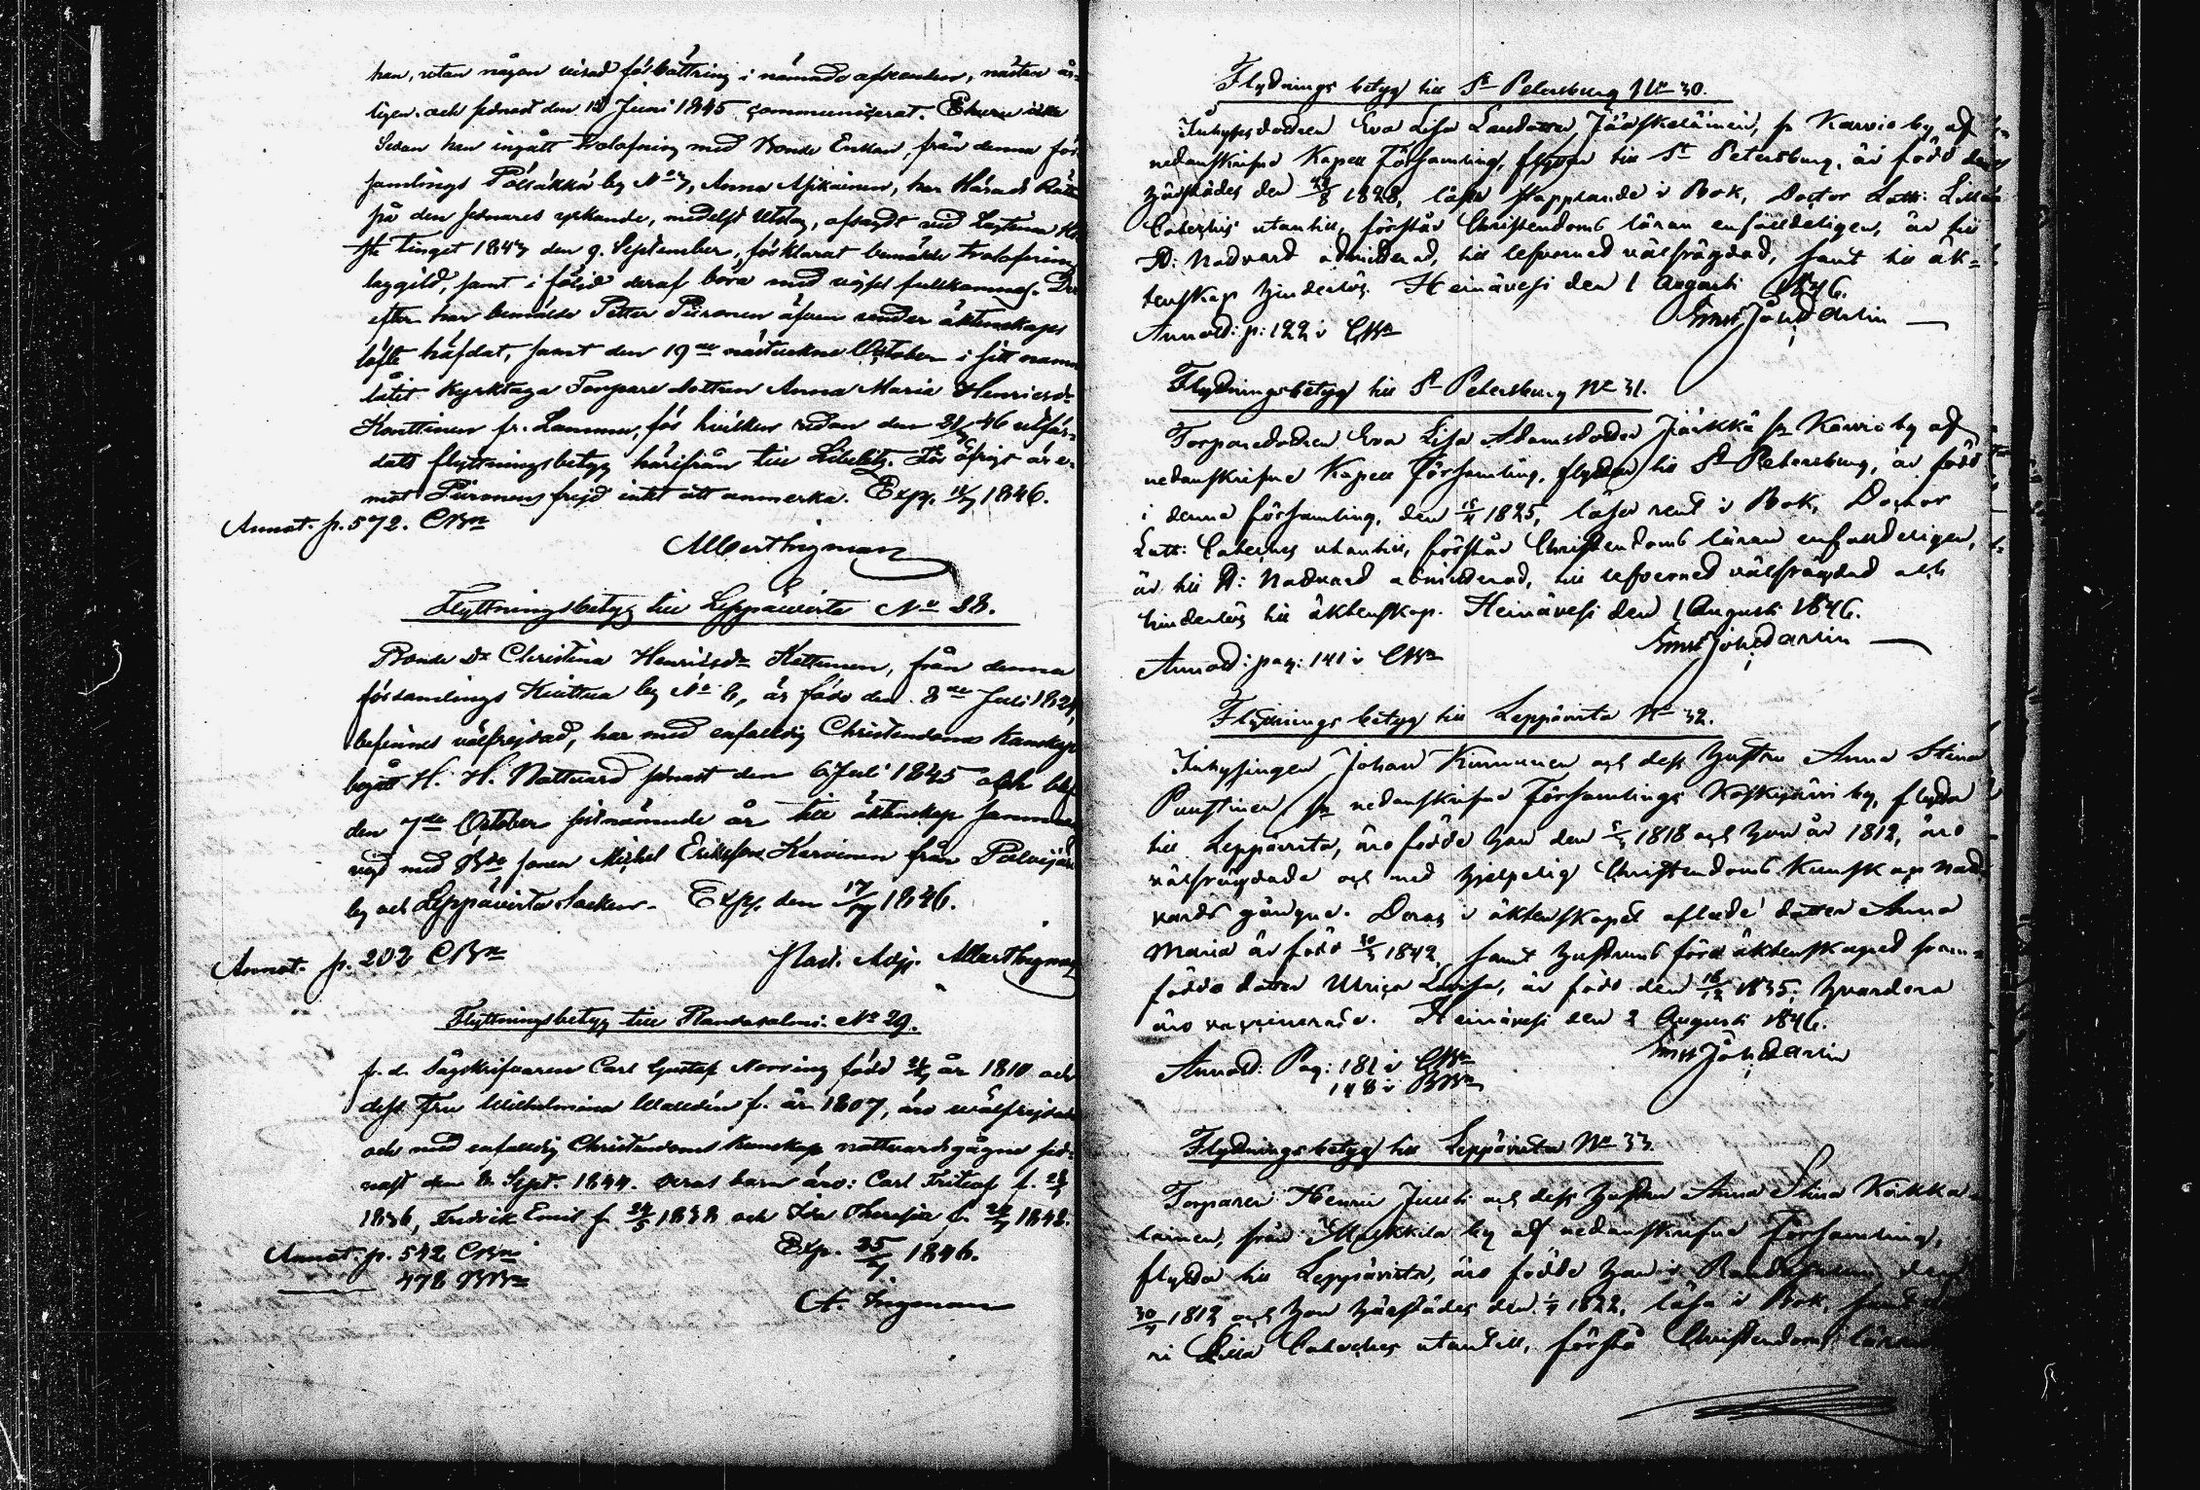 han, utan någon wisad förbättring i nämnde afseenden, nästan år-
ligen och sednast den 12 Juni 1845 communicerat. Ehuru
Sedan han ingått trolofning med Bonde Enkan, från denna för-
samlings Pölläkkä by N:o 7, Anna Asikainen, har Härads Rätten
på den sednares yrkande, medelst Utslag, afsagdt vid Lagtima Hö-
ste Tinget 1843 den 9 September, förklarat bemälde trolofning
laggild, samt i följd deraf böra med vigsel fullkomnas. Der-
efter har bemälde Petter Piironen äfven under äktenskaps
löfte häfdat, samt den 19de nästvekne October i sitt namn
låtit Kyrktaga Torpare dottren Anna Maria Henricsdr
Konttinen fr. Lammu, för hvilken redan den 46 utfär-
dats flyttningsbetyg härifrån till Libelitz. För öfrigt är e-
mot Piironens frejd intet att anmerka. Exp. 1846.
Annot. p. 572. CBn
Albert Ingman
Flyttningsbetyg till Leppävirta No 28.
Bonde Dr Christina Henricsdr Kettunen, från denna
församlings Kiuttua by No 6, är född den 8de Juli 1824,
befinnes välfrejdad, har med enfaldig Christendoms Kunskap
begått H. H. Nattvard sednast den 6 Juli 1845 och blef
den 7de October sistnämnde år till äktenskap samman
vigd med Bde sonen Michel Eriksson Karvinen från Paloisjärvi
by och Leppävirta Socken. Exp. den 17/7 1846.
Annot. p. 202 CBn
Past. Adj. Albert Ingman
Flyttningsbetyg till Randasalmi No 29.
f. d. Sågskrifvaren Carl Gustaf Norring född år 1810 och
dess Fru Wilhelmina Walldén f. år 1807, äro wälfrejdade
och med enfaldig Christendoms kunskap nattvardsgångne sed-
nast den 8 Sept. 1844. deras barn äro: Carl Fritiof f.
1836, Fredrik Emil f. 24/5 1838 och Ida Theresia f. 1842.
Annot. p. 542 CBn
478 BBn
Exp. 25/7 1846.
A. Ingman
Flyttnings betyg till St Petersburg No 30.
Inhysesdottren Eva Lisa Jääskeläinen, fr Karvio by af
nedanskrifne Kapell Församling, flyttar till St Petersburg, är född
härstädes den 1828, läser stapplande i Bok, Doctor Luth: Lilla
Cateches utantill, förstår Christendoms läran enfaldeligen, är till
H: Nattvard admitterad, till lefverned välfrägdad, samt till äk-
tenskap hinderlös. Heinävesi den 1 Augusti 1846.
Ernst Joh: Darlin
Annoterd: p: 122 i CBn
Flyttningsbetyg till St Petersburg No 31.
Torparedottren Eva Lisa Adamsdotter Jäskkä fr Karvio by af
nedanskrifne Kapell Församling, flyttar till St Petersburg, är född
i denna församling, den 1825, läser rent i Bok, Doctor
Luth: Cateches utantill, förstår Christendoms läran enfaldeligen,
är till H: Nattvard admitterad, till lefverned välfrägdad och
hinderlös till äktenskap. Heinävesi den 1 Augusti 1846.
Ernst Joh: Darlin
Annoterd: pag: 141 i CBn
Flyttnings betyg till Leppävirta No 32.
Inhysingen Johan Kinnunen och dess Hustru Anna Stina
Puustinen fr nedanskrifne Församlings Koskijärvi by, flytta
till Leppävirta, äro födde han den 1818 och hon år 1812, äro
välfrägdade och med hjelpelig Christendoms Kunskap Natt-
vards gångne. Deras i äktenskapet aflade dotter Anna
Maria är född 1842, samt hustruns före äktenskaped fram-
födda dotter Ulrica Lovisa, är född den 16/12 1835; hvardera
äro vaccinerade. Heinävesi den 2 Augusti 1846.
Ernst Joh: Darlin
Annoterd: Pag: 181 i CBn
148 i BBn
Flyttningsbetyg till Leppävirta No 33.
Torparen Henric Juuti och dess Hustru Anna Stina Kokka-
lainen, från by af nedanskrifne Församling,
flytta till Leppävirta, äro födde han i Randasalmi den
1812 och hon härstädes den 1822, läsa i Bok, samt
ri Lilla Cateches utantill, förstå Christendoms läran